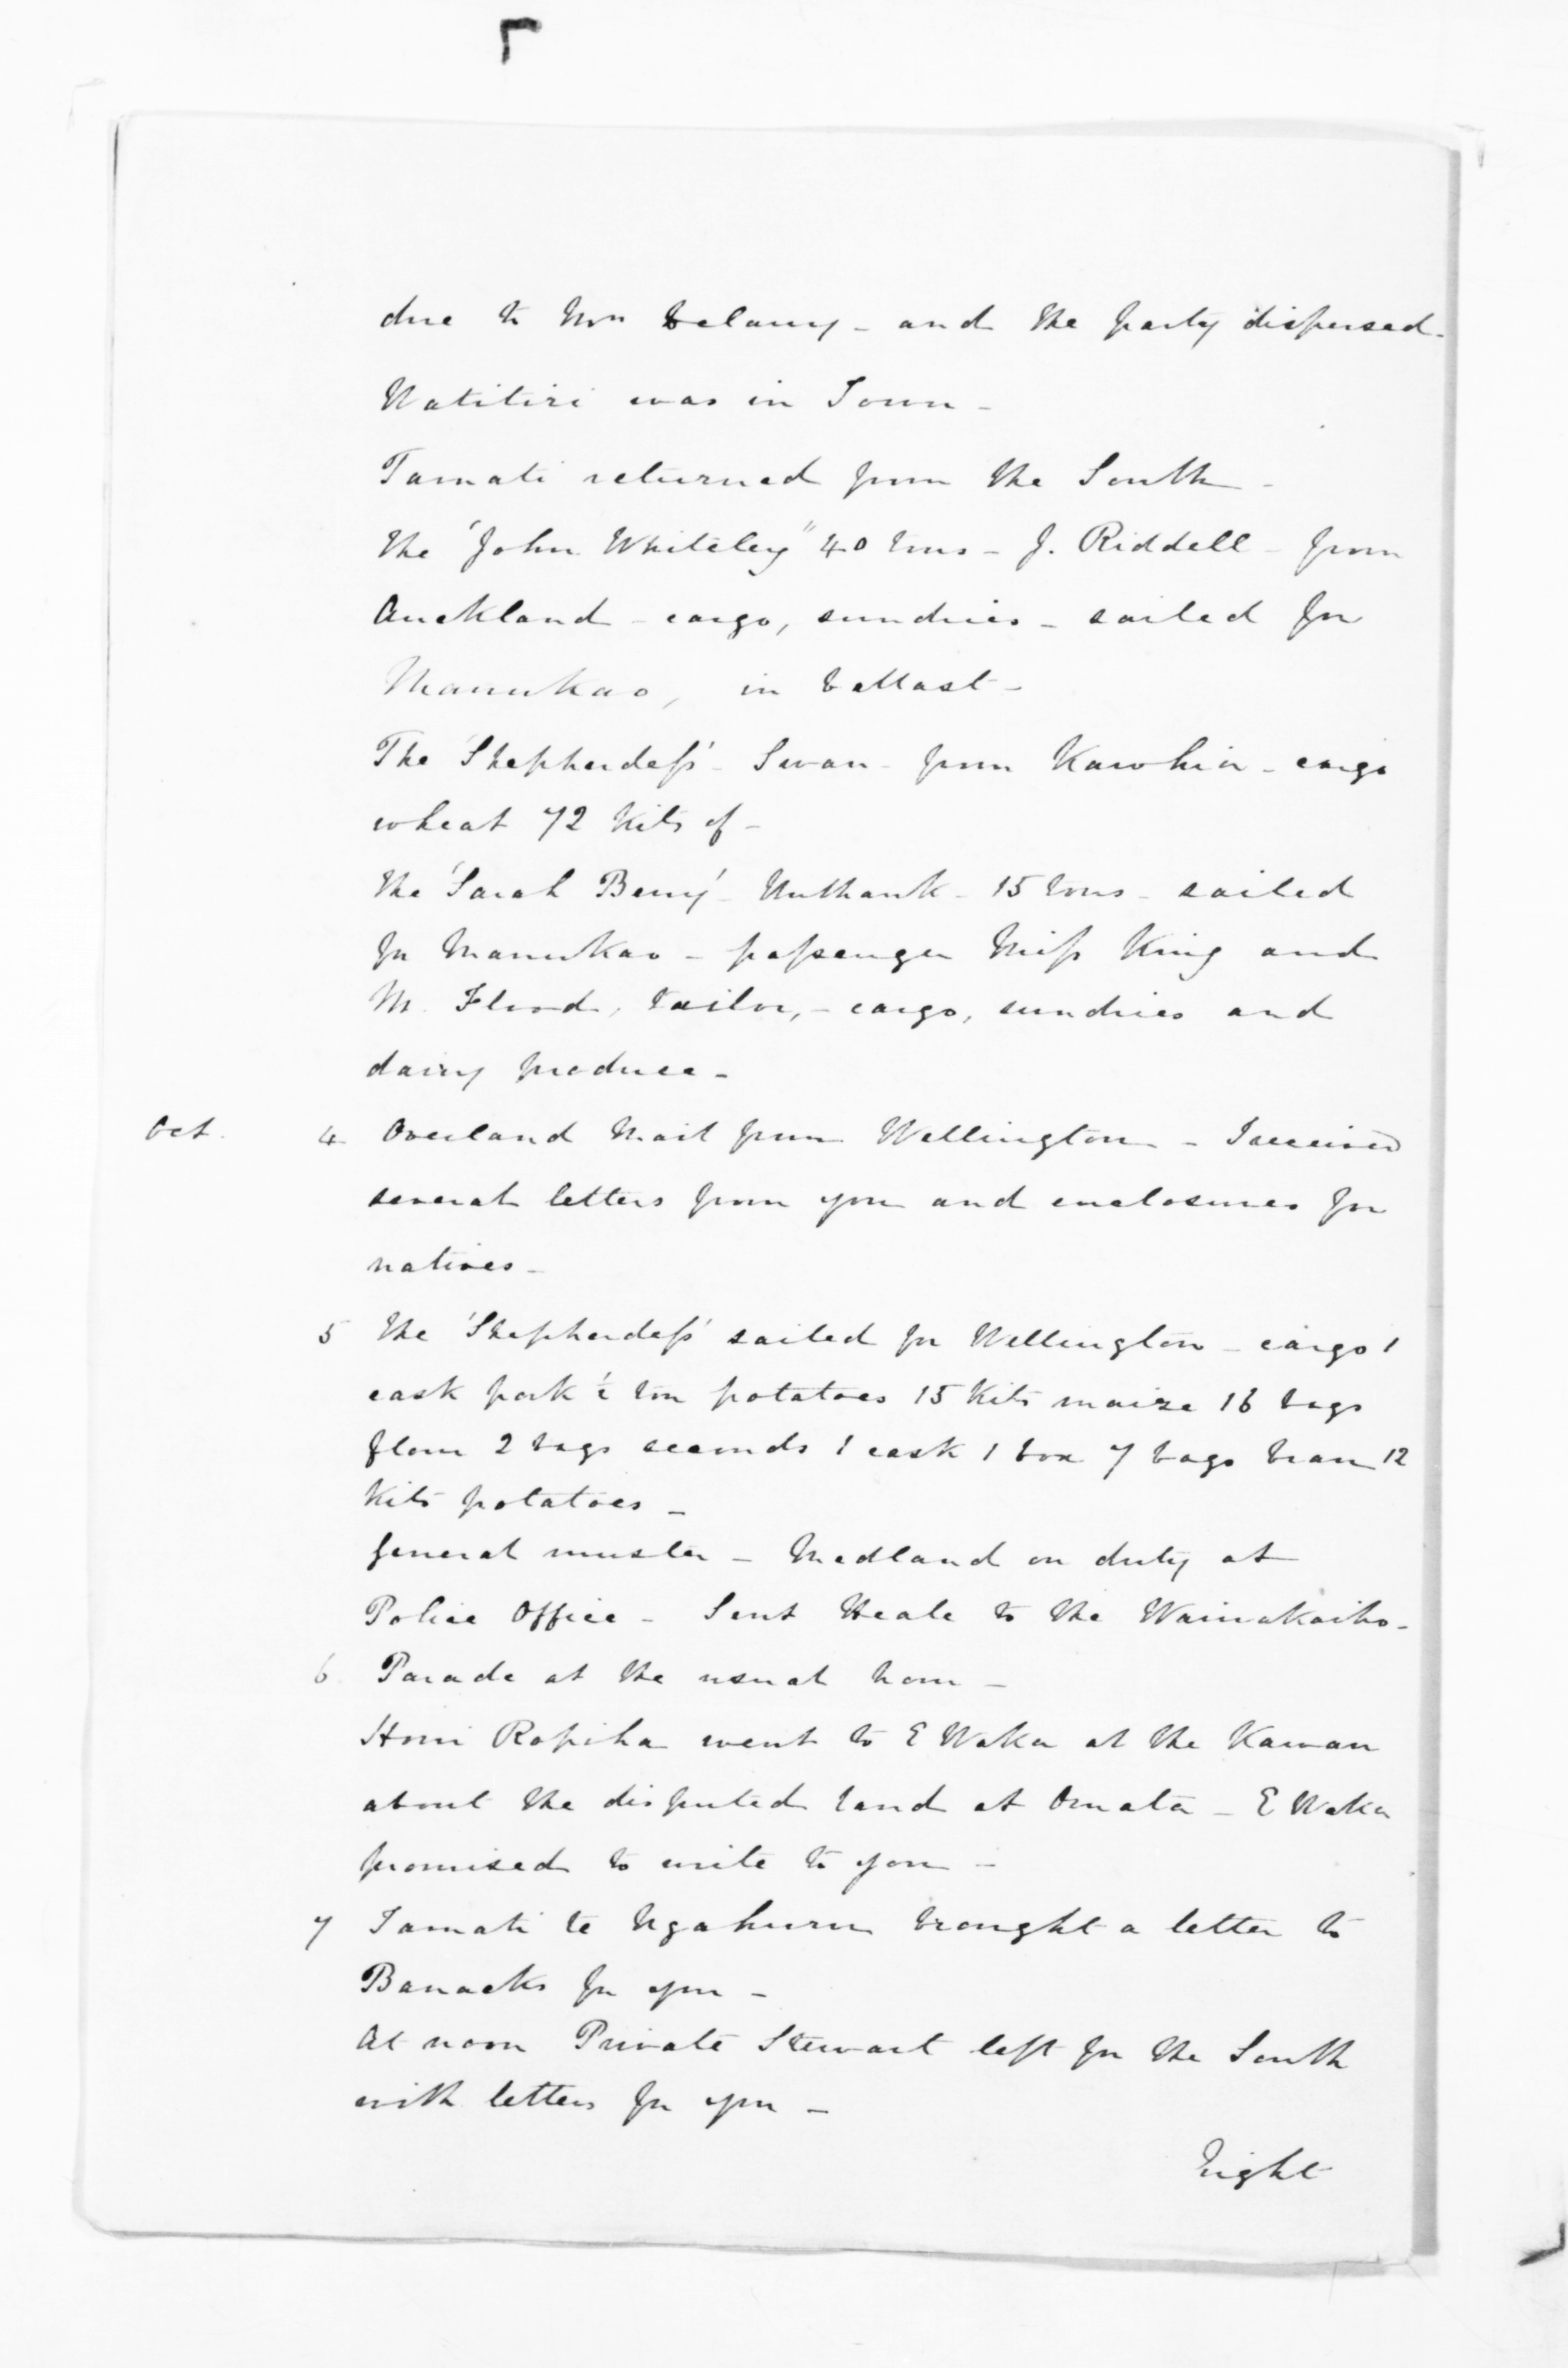 due to Mrs Delamy - and the party dispersed -
Watitiri was in Town -
Tamati returned from the South -
The "John Whiteley" 40 tons - J. Riddell - from
Auckland - cargo, sundries - sailed for
Manukao, in ballast -
The 'Shepherdess' - Swan - from Kawhia - cargo
wheat 72 kits of -
The 'Sarah Berry' - Unthank - 15 tons - sailed
for Manukao - passenger Miss King and
M. Flood, tailor, - cargo, sundries and
dairy produce -
Oct. 4 Overland Mail from Wellington - I received
several letters from you and enclosures for
natives -
5 The 'Shepherdess' sailed for Wellington - cargo 1
cask pork ½ ton potatoes 15 kits maize 16 bags
flour 2 bags seconds 1 cask 1 box 7 bags bran 12
kits potatoes -
General muster - Medland on duty at
Police Office - Sent Heale to the Waiwakaiho -
6 Parade at the usual hour -
Honi Ropiha went to E Waka at the Kawau
about the disputed land at Omata - E Waka
promised to write to you -
7 Tamati te Ngahuru brought a letter to
Barracks for you -
At noon Private Stewart left for the South
with letters for you -
Eight